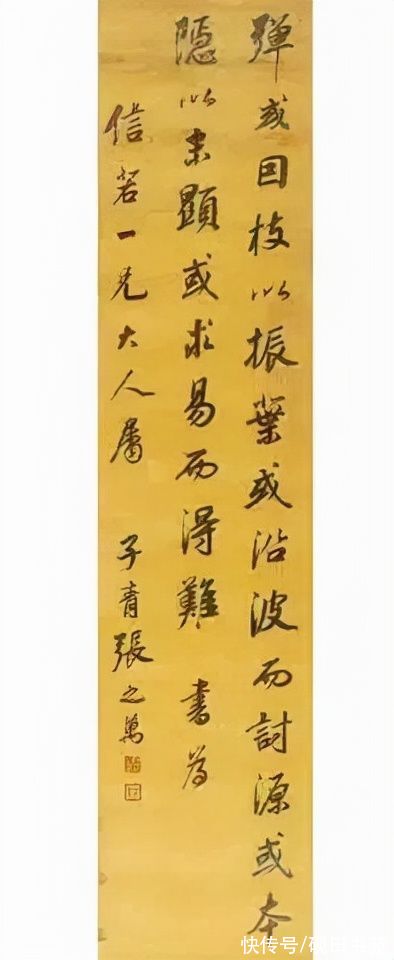 彈或因枝以振葉或沿波而討源或本
隱以末顯或求易而得難 書為
信若一兄大人屬 子青張之萬
快传号/砚田书